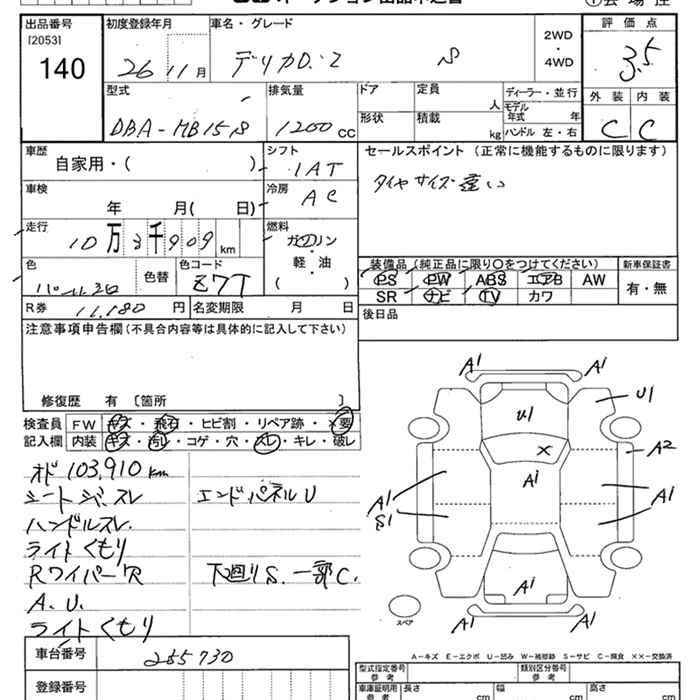 出品番号 初度登録年月 車名・グレード 評価点
[2053] 2WD
・
4WD
140 26 11月 デリカD:2 S 3.5
外装 内装
C C
型式 排気量 ドア 定員 人 ディーラー・並行
モデル年式 年
DBA-MB15S 1200 CC 形状 積載 kg ハンドル 左・右
車歴 シフト セールスポイント (正常に機能するものに限ります)
自家用・( ) 1AT タイヤサイズ違い
車検 冷房
年 月( 日) AC
走行 燃料
10万3千909 km ガソリン
・
軽・油
( )
装備品 (純正品に限り○をつけてください) 新車保証書
色 色替 色コード PS PW ABS エアB AW 有・無
Z7T SR ナビ TV カワ
R券 11,180 円 名変期限 月 日 後日品
注意事項申告欄 (不具合内容等は具体的に記入して下さい)
修復歴 有 〔箇所 〕
検査員 FW キズ・飛石・ヒビ割・リペア跡・×要
記入欄 内装 キズ・汚レ・コゲ・穴・スレ・キレ・破レ
オド 103,910 km
シートシミ.スレ エンドパネルU
ハンドルスレ.
ライトくもり
Rワイパー欠 下廻りS.一部C.
A.U.
ライトくもり
A1 A1
U1
U1
A2
X
A1
A1 A1
S1
A1
A1 A1
スペア
A-キズ E-エクボ U-凹み W-補修跡 S-サビ C-腐食 XX-交換済
車台番号 255730
型式指定番号 参考 類別区分番号 参考
登録番号 車庫証明用 参考 長さ cm 幅 cm 高さ cm